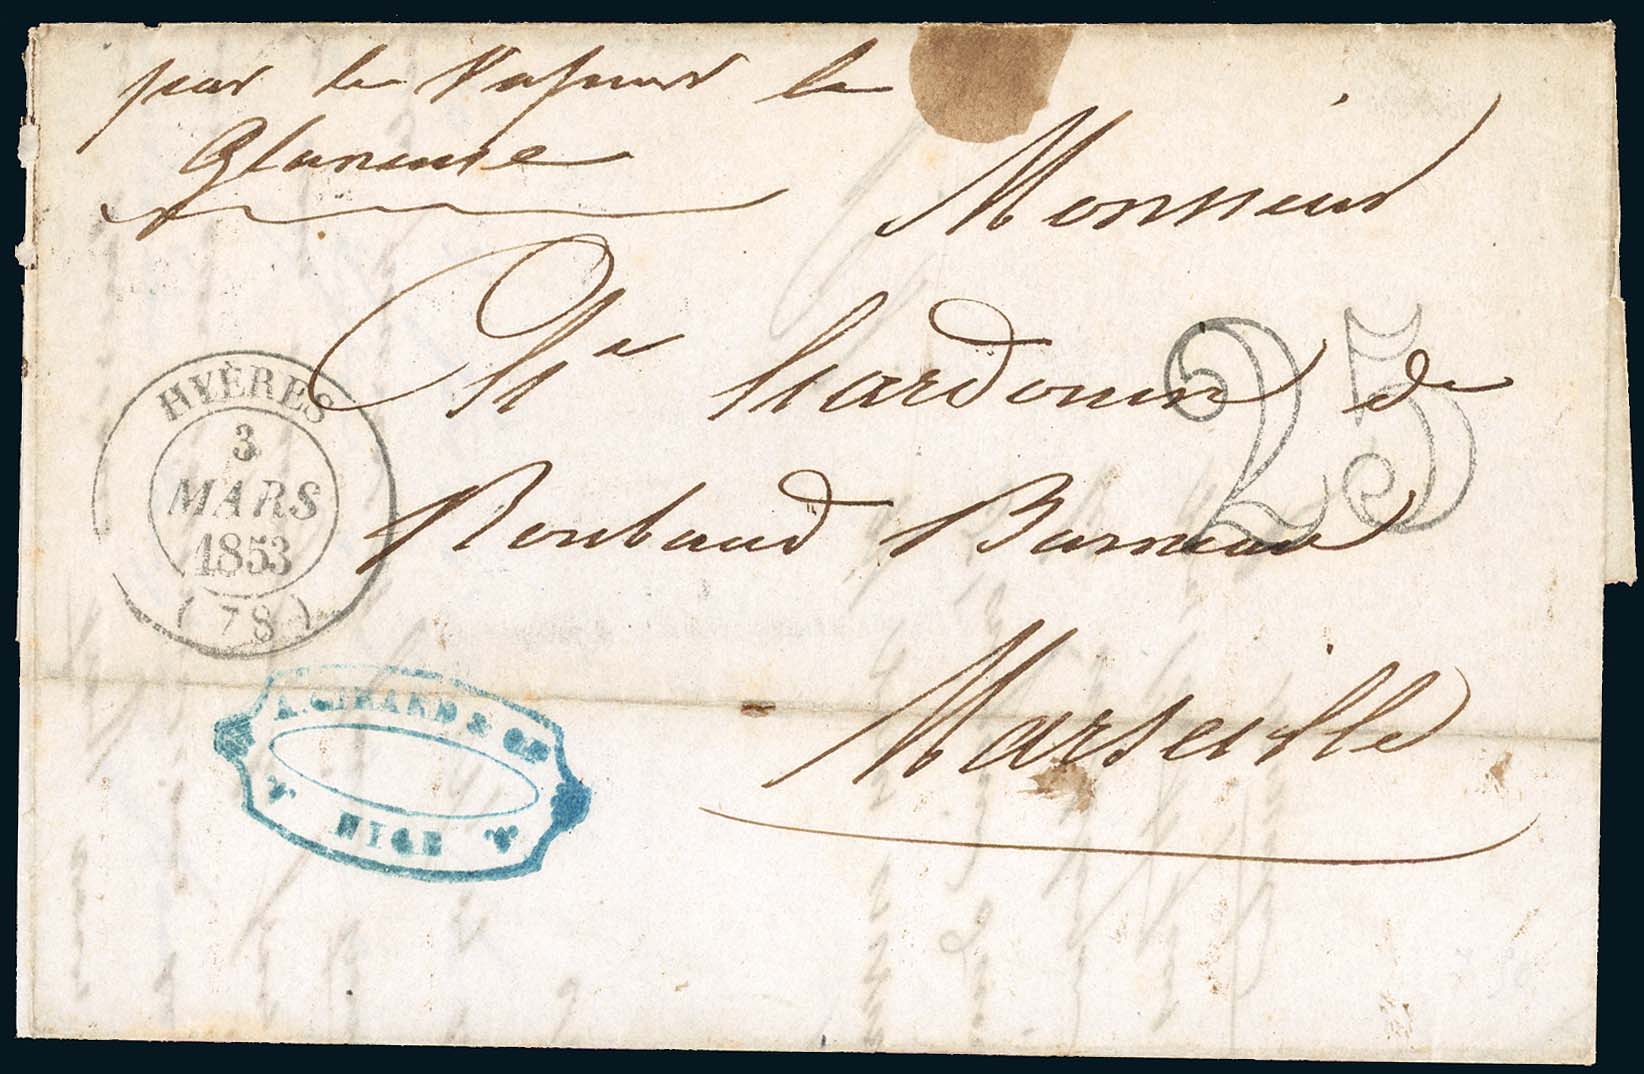 par le Vapeur le
Glaneuse
Monsieur
Ch^s hardouin de
Roubaud Barneau
Marseille
25
HYÈRES
3
MARS
1853
(78)
A. GIRARD & C^e
NICE